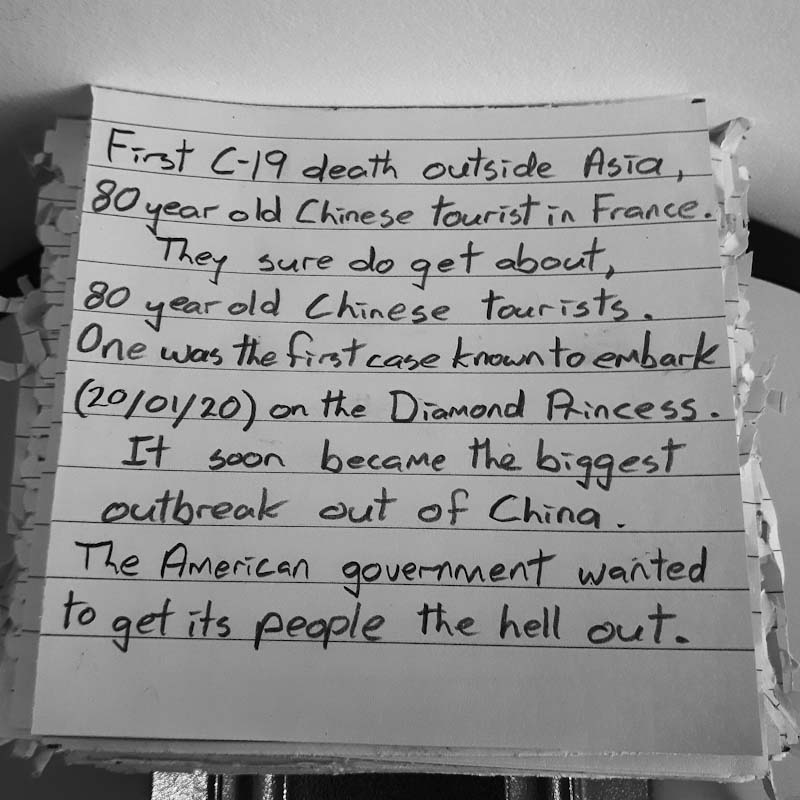 First C-19 death outside Asia,
80 year old Chinese tourist in France.
They sure do get about,
80 year old Chinese tourists.
One was the first case known to embark
(20/01/20) on the Diamond Princess.
It soon became the biggest
outbreak out of China.
The American government wanted
to get its people the hell out.